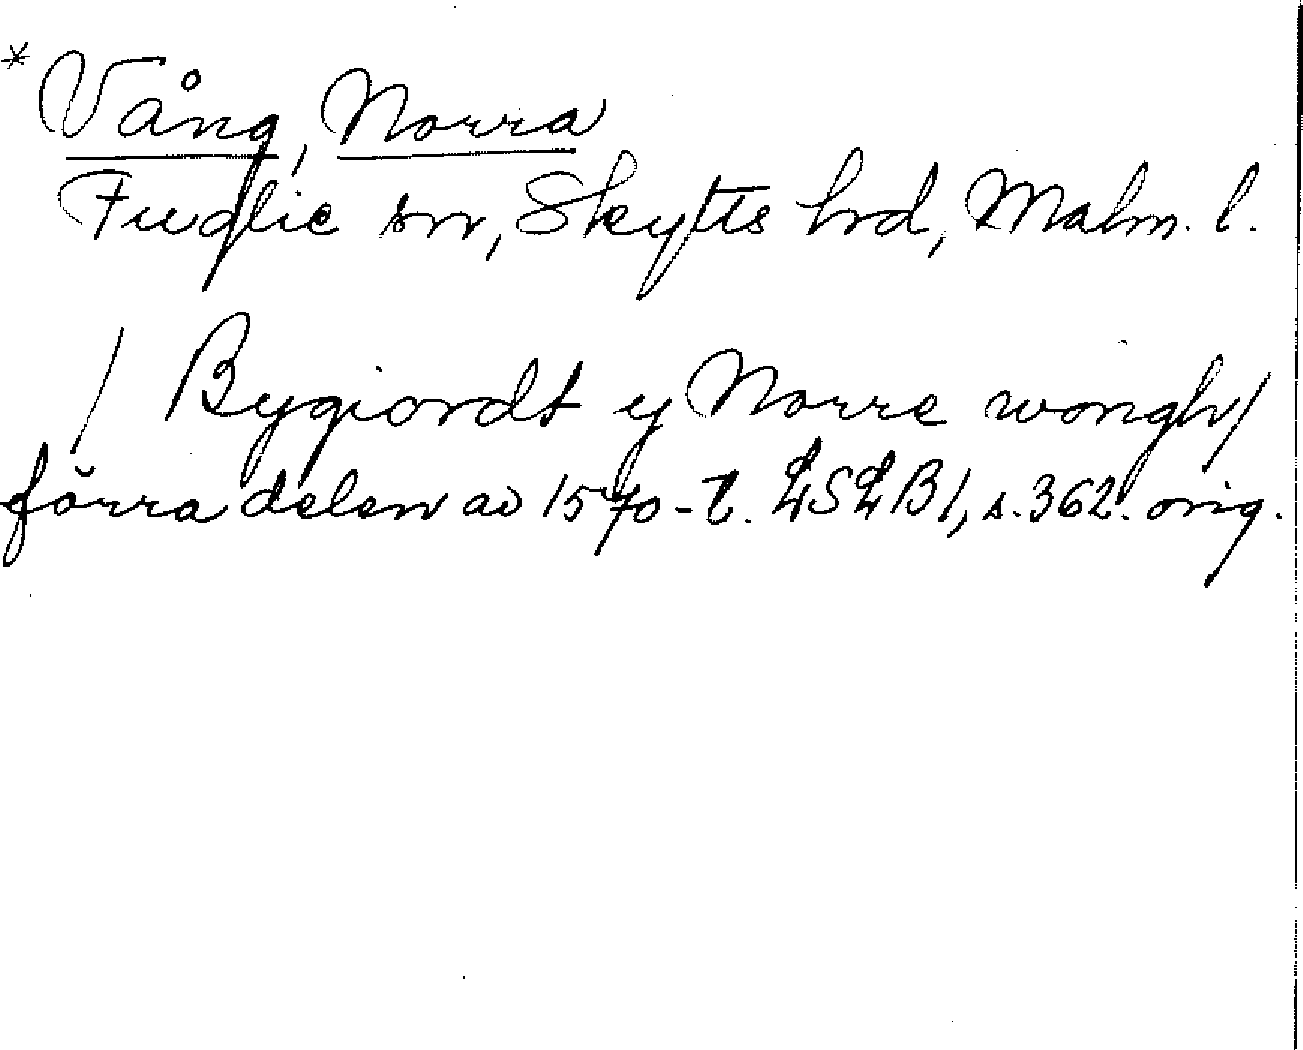 * Vång, Norra
Fuglie sn, Skytts hrd, Malm. l.
/ Bygiordt y Norre wongh /
förra delen av 1570-t. LSLB 1, s. 362. orig.